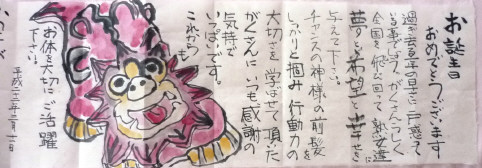 お誕生日
おめでとうございます
過ぎ去る年の日を一戸惑って
いる事でしょう。がくさんらしく
全国を飛び回って熟女達に
夢と希望と幸せを
与えて下さい。
チャンスの神様の前髪を
しっかりと掴み行動力の
大切さを学ばせて頂いた
がくさんにいつも感謝の
気持で
いっぱいです。
これからも
お体を大切にご活躍
下さい。
平成二十三年三月一日